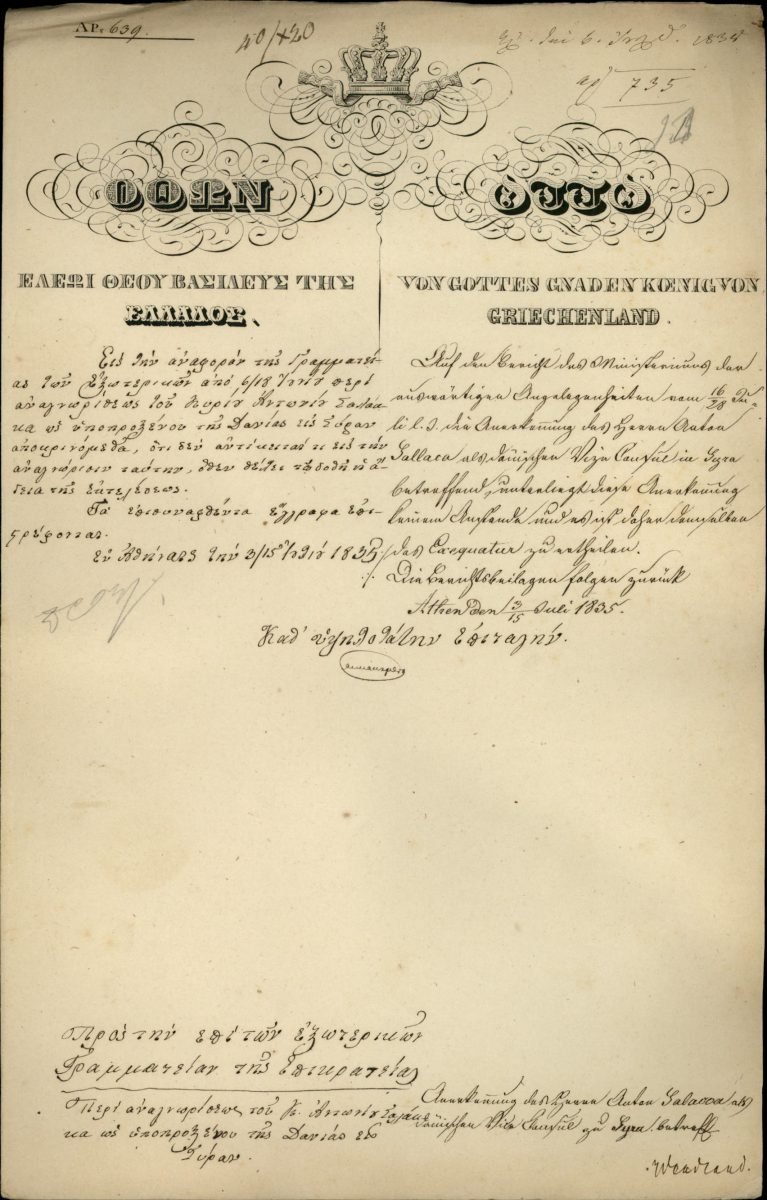 ΑΡ. 639.
40/420
735
ΟΘΩΝ
ΕΛΕΩΙ ΘΕΟΥ ΒΑΣΙΛΕΥΣ ΤΗΣ
ΕΛΛΑΔΟΣ.
Εἰς τὴν ἀναφορὰν τῆς Γραμματεί-
ας τῶν Ἐξωτερικῶν ἀπὸ 6/18 περὶ
ἀναγνωρίσεως τοῦ Κυρίου Ἀντωνίου Σαλάα-
κα ὡς ὑποπροξένου τῆς Δανίας εἰς Σύραν
ἀποκρινόμεθα, ὅτι δὲν ἀντίκειταί τι εἰς τὴν
ἀναγνώρισιν ταύτην, ὅθεν θέλει τῷ δοθῆ ἡ ἄ-
δεια τῆς ἐκτελέσεως.
Τὰ ἐπισυναφθέντα ἔγγραφα ἐπι-
στρέφονται.
ἐν Ἀθήναις τὴν 3/15 Ἰουλίου 1835
OTTO
VON GOTTES GNADEN KŒNIG VON
GRIECHENLAND.
Auf den Bericht des Ministeriums der
auswärtigen Angelegenheiten vom 16/28 Ju-
li l. J. die Anerkennung des Herrn Anton
Sallaca als dänischen Vize Consul in Syra
betreffend, unterliegt diese Anerkennung
keinem Anstande und es ist daher demselben
das Exequatur zu ertheilen.
Die Berichtsbeilagen folgen zurück
Athen den 3/15 Juli 1835.
Καθ' ὑψηλοτάτην ἐπιταγήν.
Πρὸς τὴν ἐπὶ τῶν Ἐξωτερικῶν
Γραμματείαν τῆς Ἐπικρατείας
Περὶ ἀναγνωρίσεως τοῦ Κ. Ἀντωνίου Σαλάα-
κα ὡς ὑποπροξένου τῆς Δανίας εἰς
Σύραν.
Anerkennung des Herrn Anton Salacca als
dänischen Vice Consul zu Syra betreff